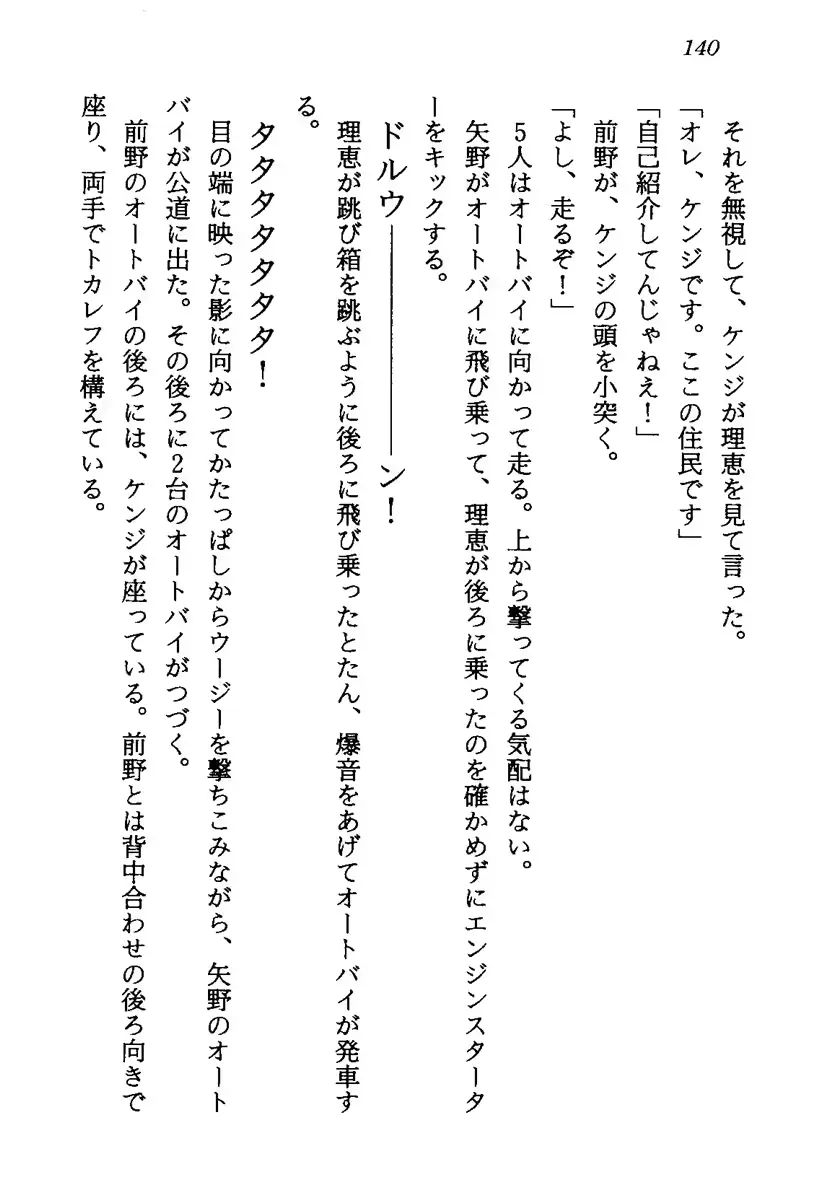 140
　それを無視して、ケンジが理恵を見て言った。
「オレ、ケンジです。ここの住民です」
「自己紹介してんじゃねえ！」
　前野が、ケンジの頭を小突く。
「よし、走るぞ！」
　5人はオートバイに向かって走る。上から撃ってくる気配はない。
　矢野がオートバイに飛び乗って、理恵が後ろに乗ったのを確かめずにエンジンスタータ
ーをキックする。
　ドルウ――――――ン！
　理恵が跳び箱を跳ぶように後ろに飛び乗ったとたん、爆音をあげてオートバイが発車す
る。
　タタタタタタタ！
　目の端に映った影に向かってかたっぱしからウージーを撃ちこみながら、矢野のオート
バイが公道に出た。その後ろに2台のオートバイがつづく。
　前野のオートバイの後ろには、ケンジが座っている。前野とは背中合わせの後ろ向きで
座り、両手でトカレフを構えている。